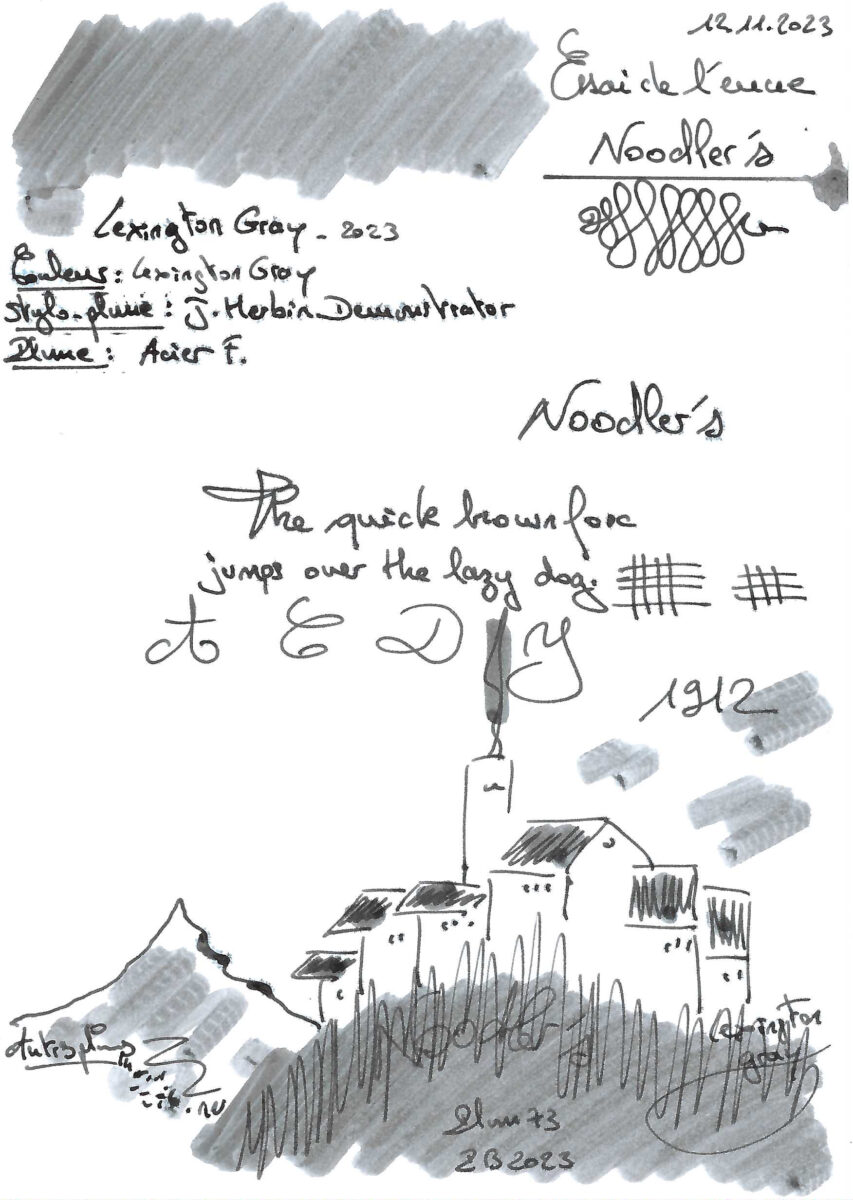 12.11.2023
Essai de l'encre
Noodler's
Lexington Gray - 2023
Couleur: Lexington Gray
Stylo-plume: J. Herbin Demonstrator
Plume: Acier F.
Noodler's
The quick brown fox
jumps over the lazy dog.
A E D Y
1912
Noodler's
Lexington
gray
2023